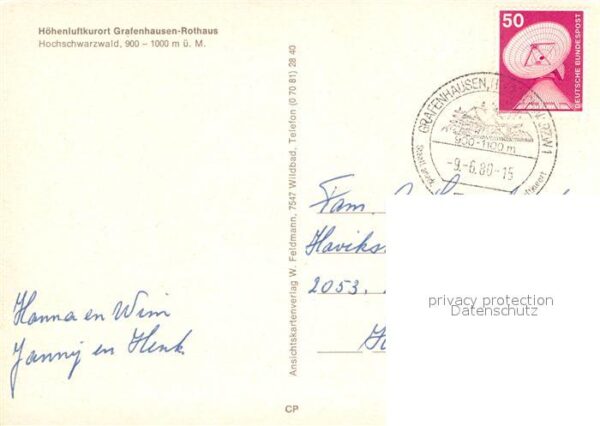 Höhenluftkurort Grafenhausen-Rothaus
Hochschwarzwald, 900 – 1000 m ü. M.
50
DEUTSCHE BUNDESPOST
GRAFENHAUSEN,
900-1100 m
-9.-6.80-15
Ansichtskartenverlag W. Feldmann, 7547 Wildbad, Telefon (0 70 81) 28 40
Fam.
Haviks
2053.
privacy protection
Datenschutz
Hanna en Wim
Janny en Henk
CP